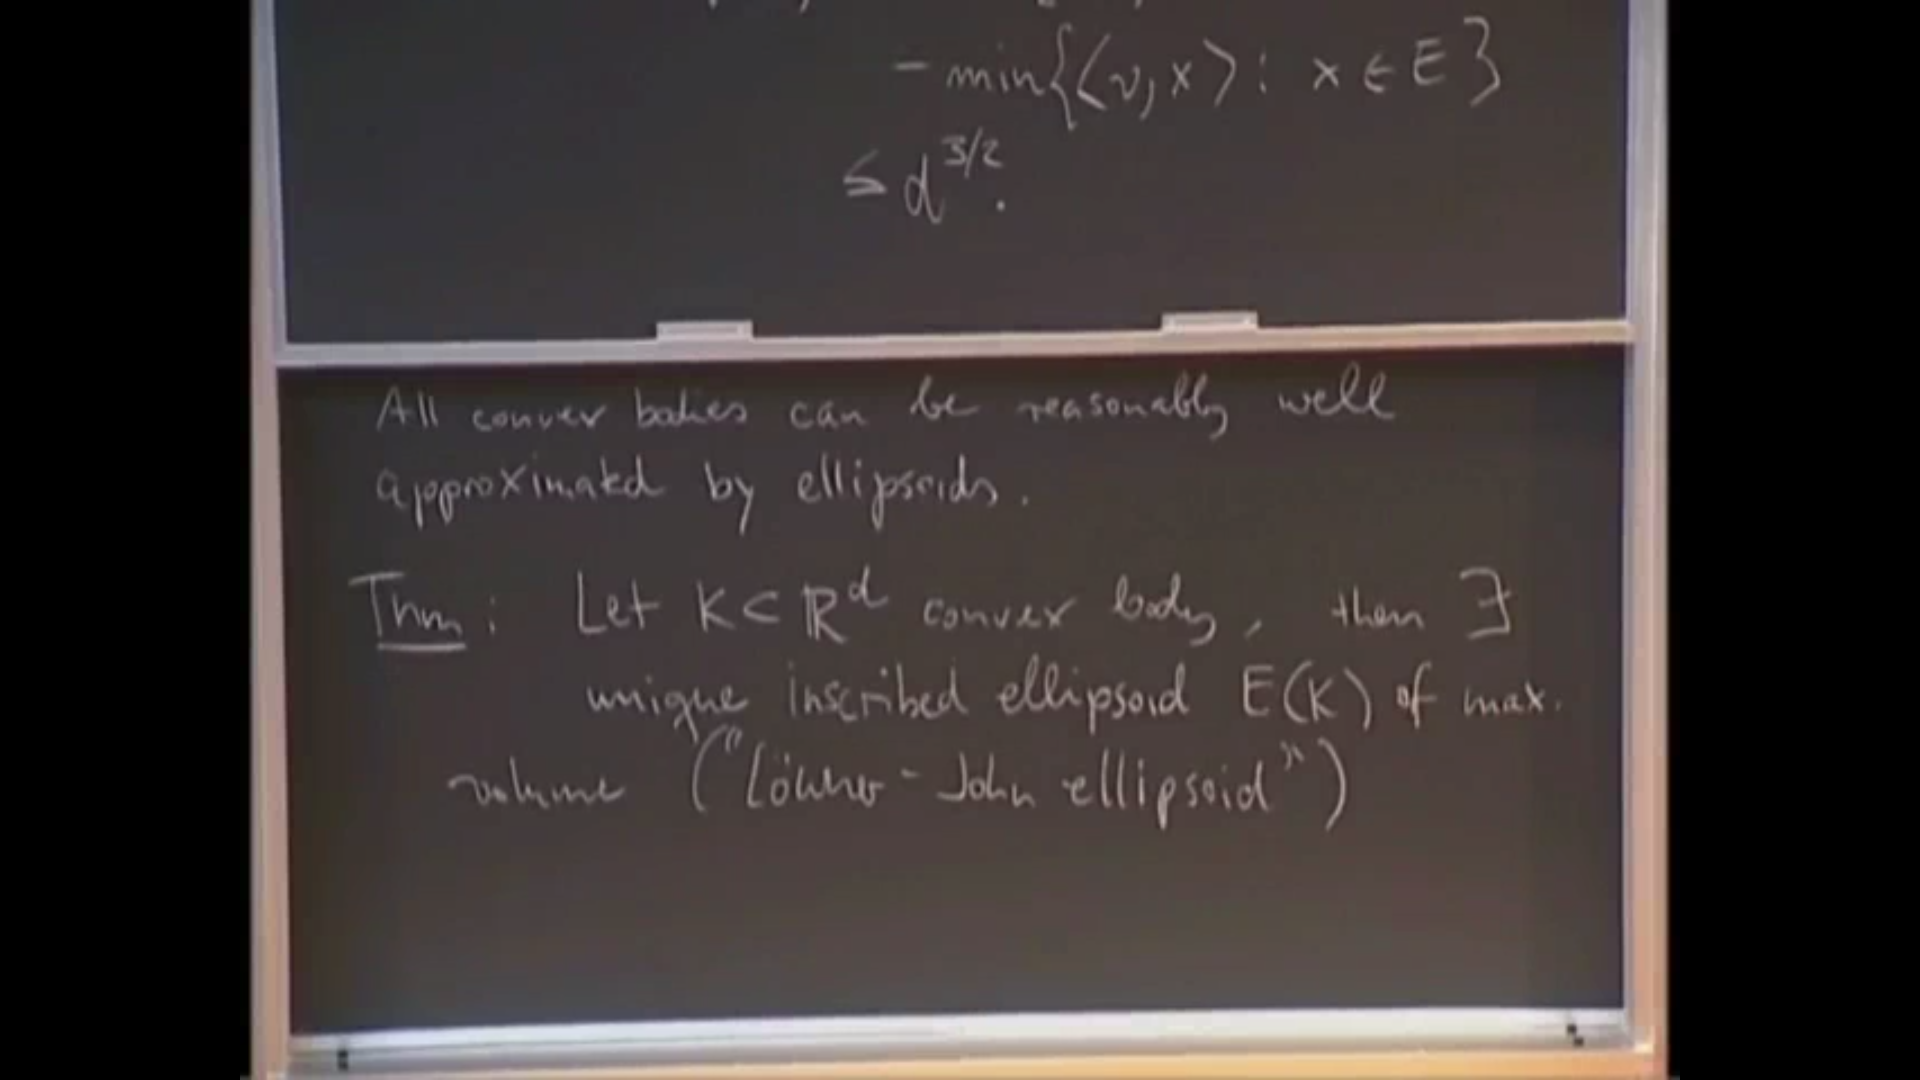 - min{⟨v,x⟩ : x ∈ E}
≤ d^{3/2}.
All convex bodies can be reasonably well
approximated by ellipsoids.
Thm: Let K ⊂ ℝ^d convex body, then ∃
unique inscribed ellipsoid E(K) of max.
volume ("Löwner-John ellipsoid")